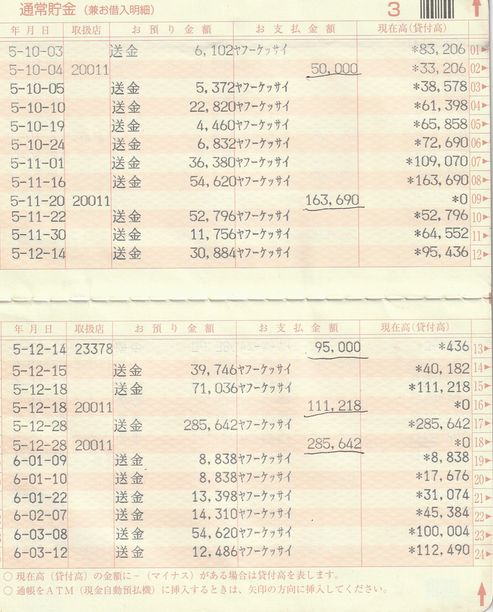 通常貯金(兼お借入明細) 3
年月日 取扱店 お預り金額 お支払金額 現在高(貸付高)
5-10-03 送金 6,102 ヤフーケッサイ *83,206 01
5-10-04 20011 50,000 *33,206 02
5-10-05 送金 5,372 ヤフーケッサイ *38,578 03
5-10-10 送金 22,820 ヤフーケッサイ *61,398 04
5-10-19 送金 4,460 ヤフーケッサイ *65,858 05
5-10-24 送金 6,832 ヤフーケッサイ *72,690 06
5-11-01 送金 36,380 ヤフーケッサイ *109,070 07
5-11-16 送金 54,620 ヤフーケッサイ *163,690 08
5-11-20 20011 163,690 *0 09
5-11-22 送金 52,796 ヤフーケッサイ *52,796 10
5-11-30 送金 11,756 ヤフーケッサイ *64,552 11
5-12-14 送金 30,884 ヤフーケッサイ *95,436 12
年月日 取扱店 お預り金額 お支払金額 現在高(貸付高)
5-12-14 23378 95,000 *436 13
5-12-15 送金 39,746 ヤフーケッサイ *40,182 14
5-12-18 送金 71,036 ヤフーケッサイ *111,218 15
5-12-18 20011 111,218 *0 16
5-12-28 送金 285,642 ヤフーケッサイ *285,642 17
5-12-28 20011 285,642 *0 18
6-01-09 送金 8,838 ヤフーケッサイ *8,838 19
6-01-10 送金 8,838 ヤフーケッサイ *17,676 20
6-01-22 送金 13,398 ヤフーケッサイ *31,074 21
6-02-07 送金 14,310 ヤフーケッサイ *45,384 22
6-03-08 送金 54,620 ヤフーケッサイ *100,004 23
6-03-12 送金 12,486 ヤフーケッサイ *112,490 24
○ 現在高(貸付高)の金額に-(マイナス)がある場合は貸付高を表します。
○ 通帳をATM(現金自動預払機)に挿入するときは、矢印の方向に挿入してください。